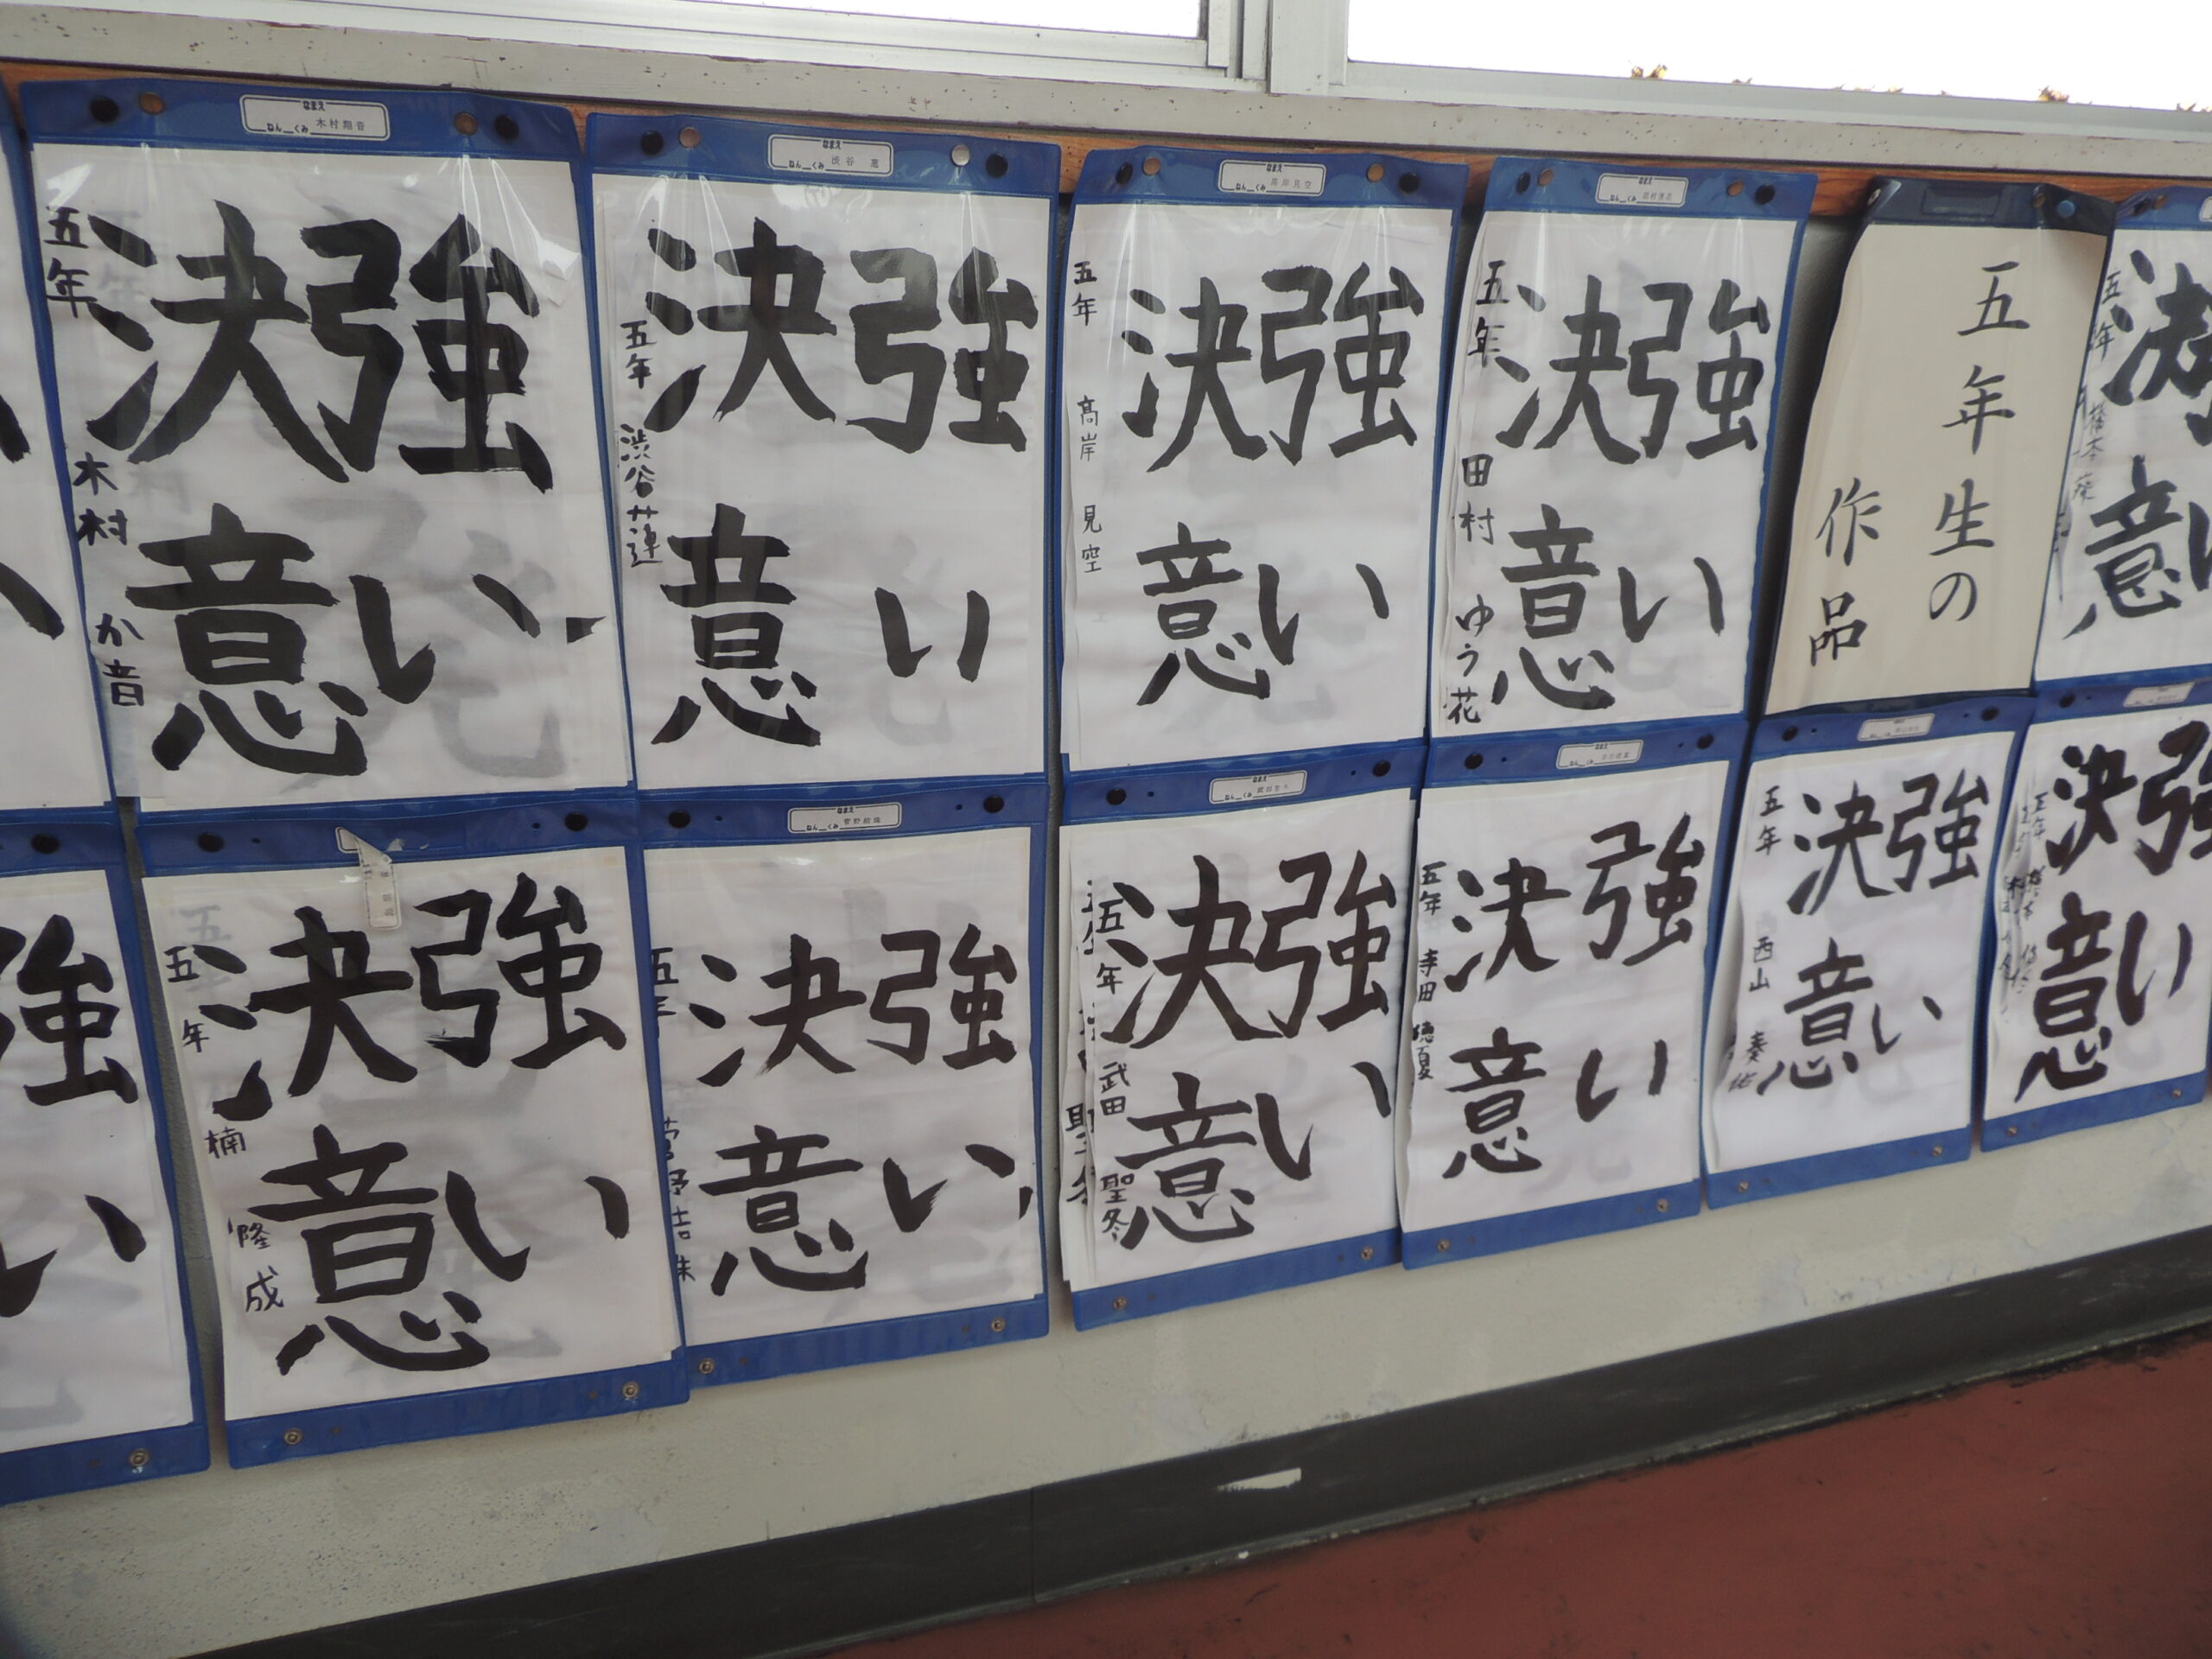 五年生の
作品
なまえ
ねん くみ 木村翔音
強い
決意
五年 木村 か音
なまえ
ねん くみ 渋谷 蓮
強い
決意
五年 渋谷蓮
なまえ
ねん くみ 高岸見空
強い
決意
五年 髙岸 見空
なまえ
ねん くみ
強い
決意
五年 田村 ゆう花
強い
決意
五年 橋本
強い
強い
決意
五年 楠 隆成
なまえ
ねん くみ
強い
決意
五年 菅野
なまえ
ねん くみ
強い
決意
五年 武田 聖冬
強い
決意
五年 寺田 徳夏
強い
決意
五年 西山 奏祐
強い
決意
五年